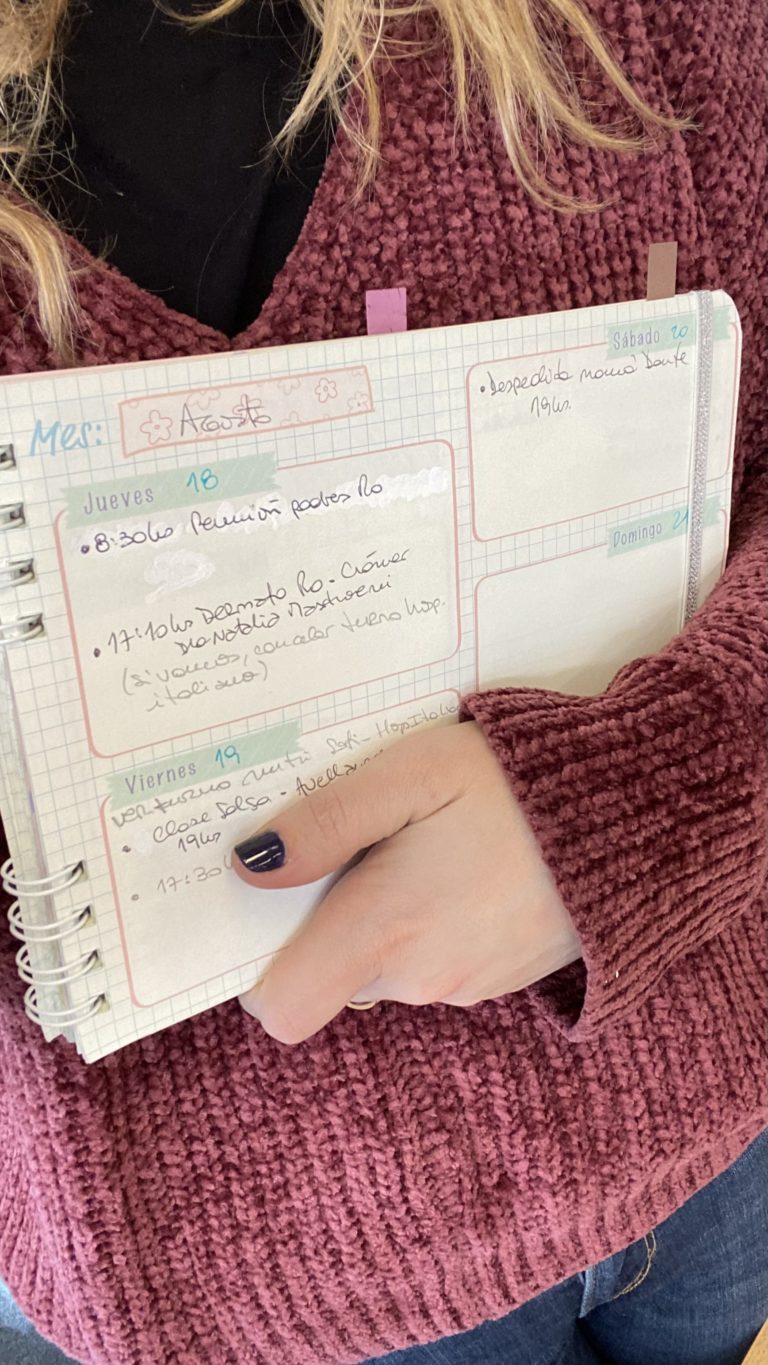 Mes: Agosto
Jueves 18
• 8:30hs Reunión padres Ro
• 17:10hs Dermato Ro - Crámer
Dra Natalia Mastroeni
(si vamos, cancelar turno hop.
italiano)
Viernes 19
ver turno nutri Sofi - Hopitaliano
• Clase Salsa - Avella
19hs
• 17:30
Sábado 20
• Despedida mamá Dante
19hs.
Domingo 21